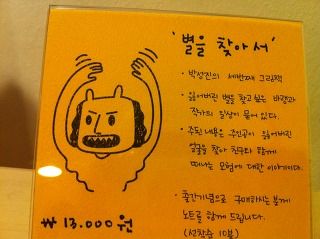 '별을 찾아서'
· 박성진의 세번째 그림책
· 잃어버린 별을 찾고 싶은 바램과
작가의 일상이 묻어 있다.
· 주된 내용은 주인공이 잃어버린
얼굴을 찾아 친구와 함께
떠나는 모험에 대한 이야기이다.
· 출간기념으로 구매하시는 분께
노트를 함께 드립니다.
(선착순 10분)
₩ 13.000 원